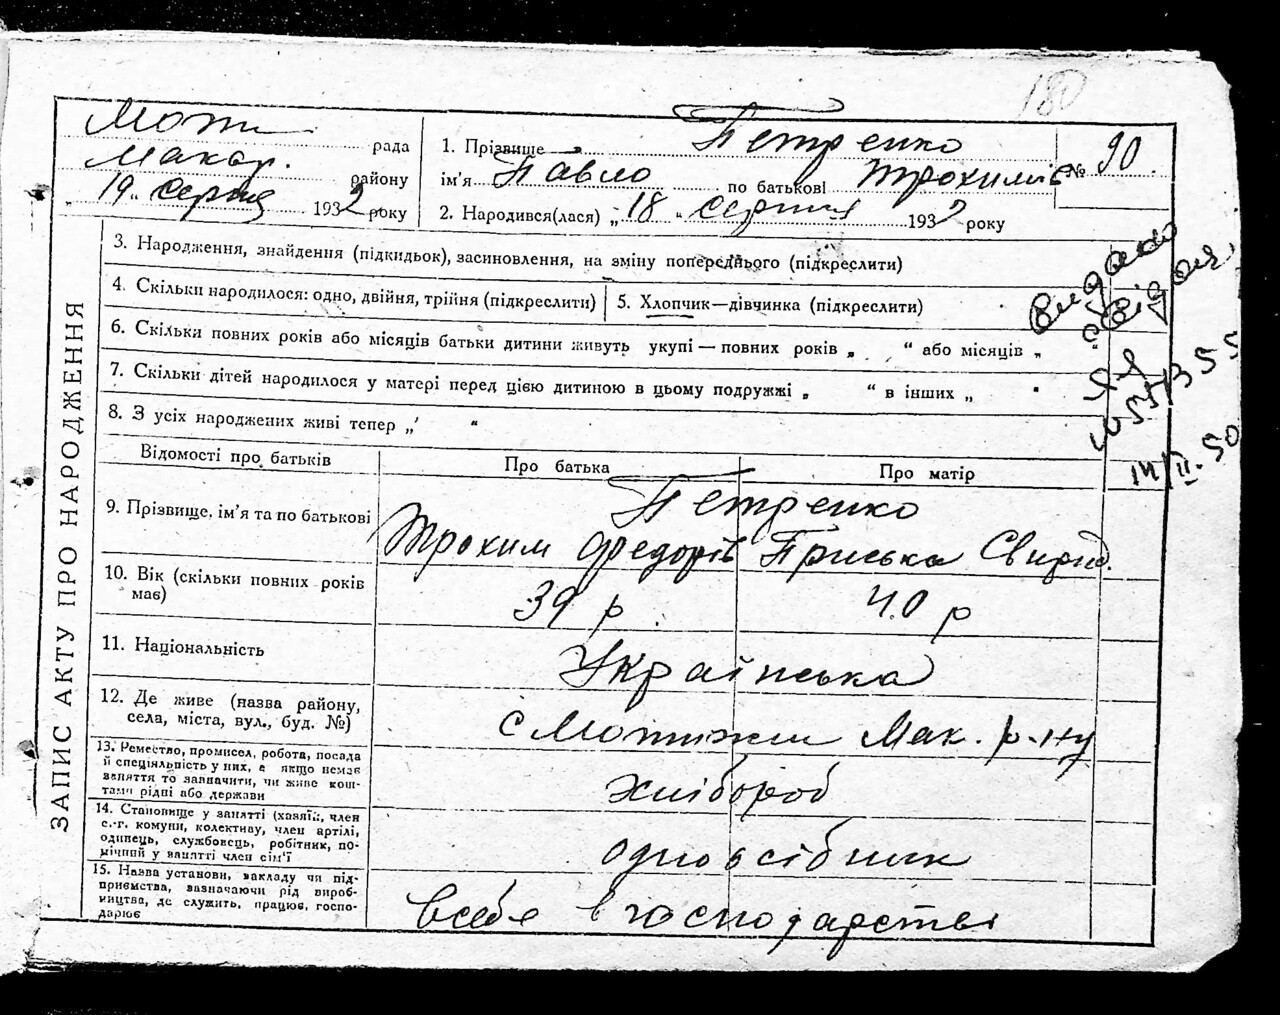 180
Мотиж рада
Макар. району
" 19 " серпня 1932 року
1. Прізвище Петренко
ім'я Павло по батькові Трохимів
№ 90.
2. Народився(лася) „ 18 " серпня 1932 року
ЗАПИС АКТУ ПРО НАРОДЖЕННЯ
3. Народження, знайдення (підкидьок), засиновлення, на зміну попереднього (підкреслити)
4. Скільки народилося: одно, двійня, трійня (підкреслити)
5. Хлопчик—дівчинка (підкреслити)
6. Скільки повних років або місяців батьки дитини живуть укупі — повних років „ " або місяців „ "
7. Скільки дітей народилося у матері перед цією дитиною в цьому подружжі „ " в інших „ "
8. З усіх народжених живі тепер „ "
видано
свідоц.
№
14/II-50
Відомості про батьків
Про батька
Про матір
9. Прізвище, ім'я та по батькові
Петренко
Трохим Федорів
Приська Свирид.
10. Вік (скільки повних років
має)
39 р
40 р
11. Національність
Українська
12. Де живе (назва району,
села, міста, вул., буд. №)
с Мотижин Мак. р-ну
13. Ремество, промисел, робота, посада
й спеціяльність у них, а якщо немає
заняття то зазначити, чи живе кош-
тами рідні або держави
хлібороб
14. Становище у занятті (хазяїн, член
с.-г. комуни, колективу, член артілі,
одинець, службовець, робітник, по-
мічний у занятті член сім'ї
одноосібник
15. Назва установи, закладу чи під-
приємства, зазначаючи рід вироб-
ництва, де служить, працює, госпо-
дарює
в себе в господарстві